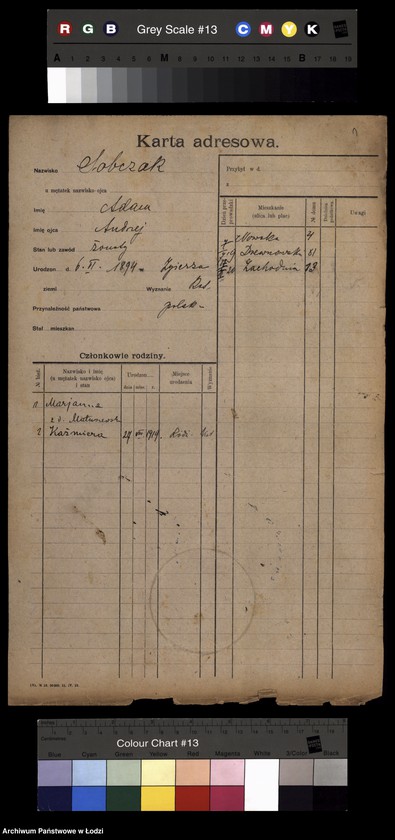 R G B Grey Scale #13 C M Y K
A 1 2 3 4 5 6 M 8 9 10 11 12 13 14 15 B 17 18 19
Karta adresowa.
Nazwisko Sobczak
u mężatek nazwisko ojca
Imię Adam
Imię ojca Andrzej
Stan lub zawód żonaty
Urodzon a 6-XI-1894 w Zgierzu
ziemi Wyznanie
Przynależność państwowa polsk.
Stał. mieszkan.
Członkowie rodziny.
№ bież. Nazwisko i imię (u mężatek nazwisko ojca) i stan Urodzon dnia mies. r. Miejsce urodzenia Wyznanie
1. Marjanna
z d.
2 Kaźmiera 24 VII 1919 Łódź
Przybył w d.
z
Mieszkanie (ulica lub plac) № domu Uwagi
Nowaka 4
Drewnowska 81
Zachodnia 13
Colour Chart #13
Blue Cyan Green Yellow Red Magenta White 3/Color Black
Archiwum Państwowe w Łodzi